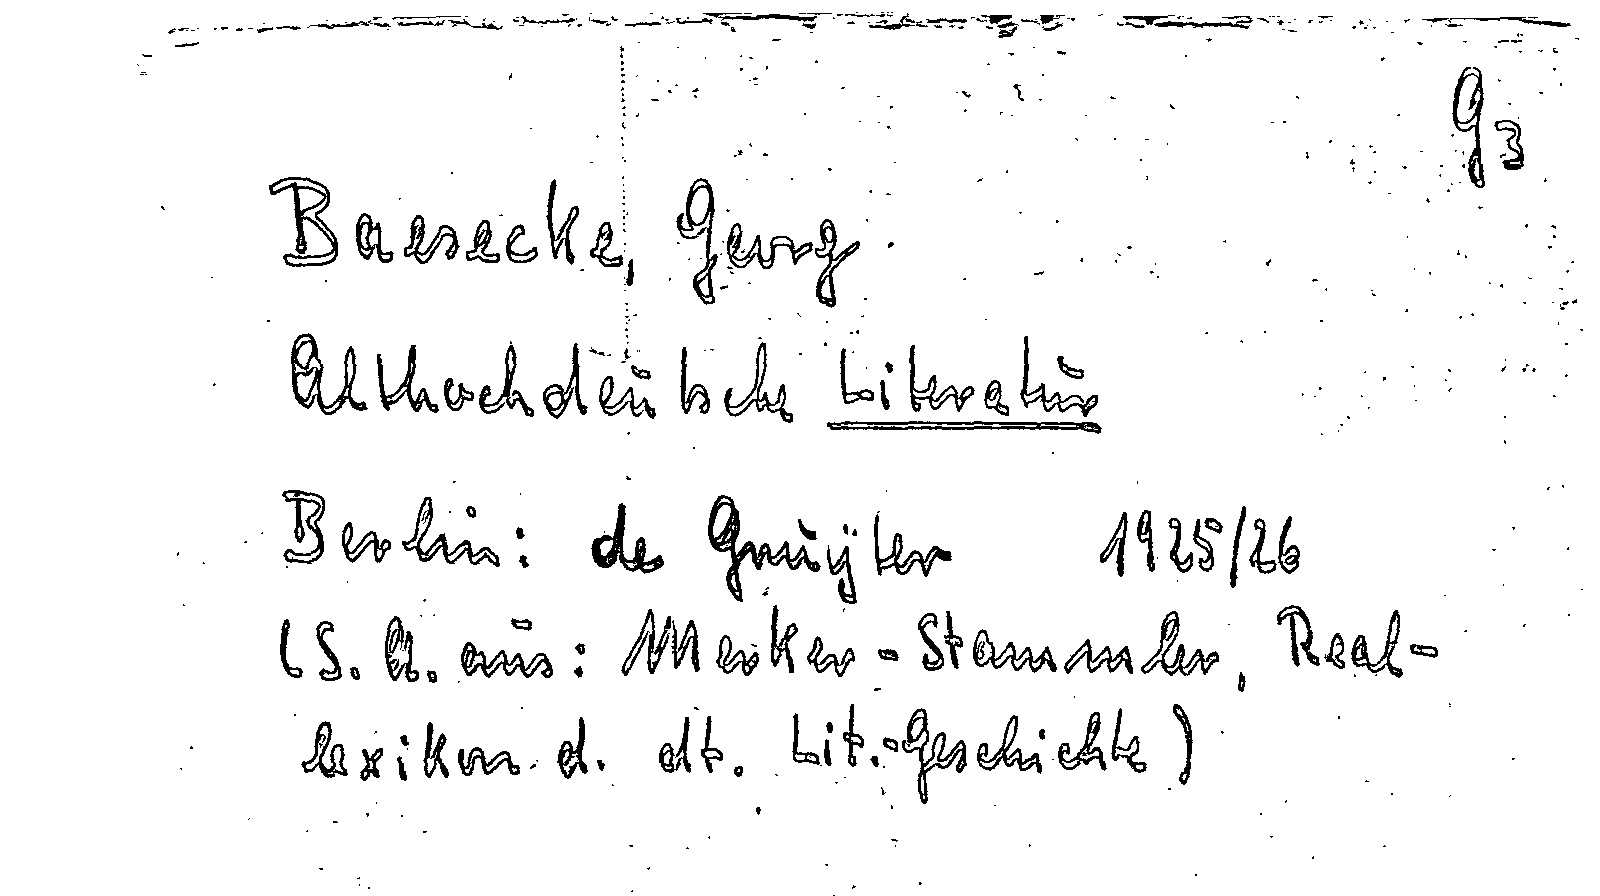 g3
Baesecke, Georg
Althochdeutsche Literatur
Berlin: de Gruyter 1925/26
(S. A. aus: Merker-Stammler, Real-
lexikon d. dt. Lit.-Geschichte)